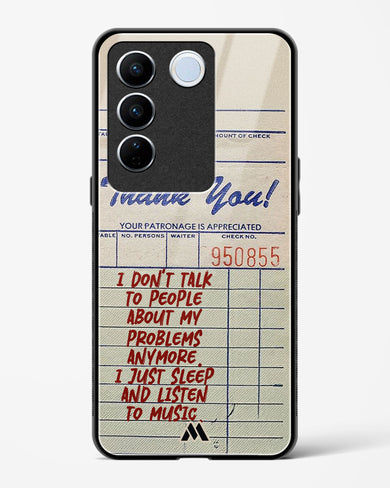 TA
MOUNT OF CHECK
Thank You!
YOUR PATRONAGE IS APPRECIATED
ABLE NO. PERSONS WAITER CHECK NO.
950855
I DON'T TALK
TO PEOPLE
ABOUT MY
PROBLEMS
ANYMORE.
I JUST SLEEP
AND LISTEN
TO MUSIC